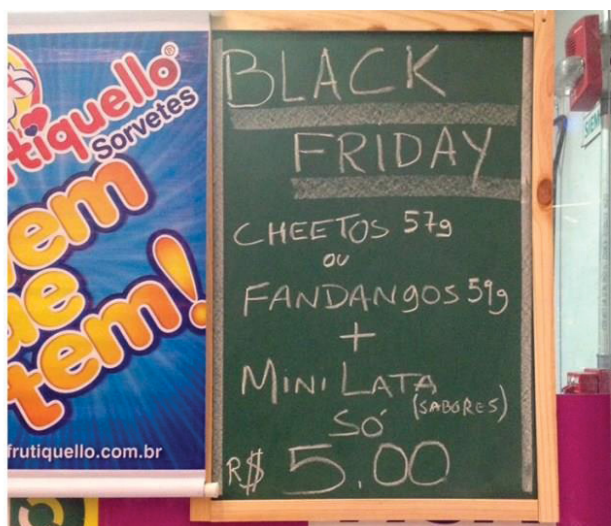 Sorvetes
tem!
frutiquello.com.br
BLACK
FRIDAY
CHEETOS 57g
OU
FANDANGOS 59g
+
MINI LATA
(SABORES)
SÓ
R$ 5.00